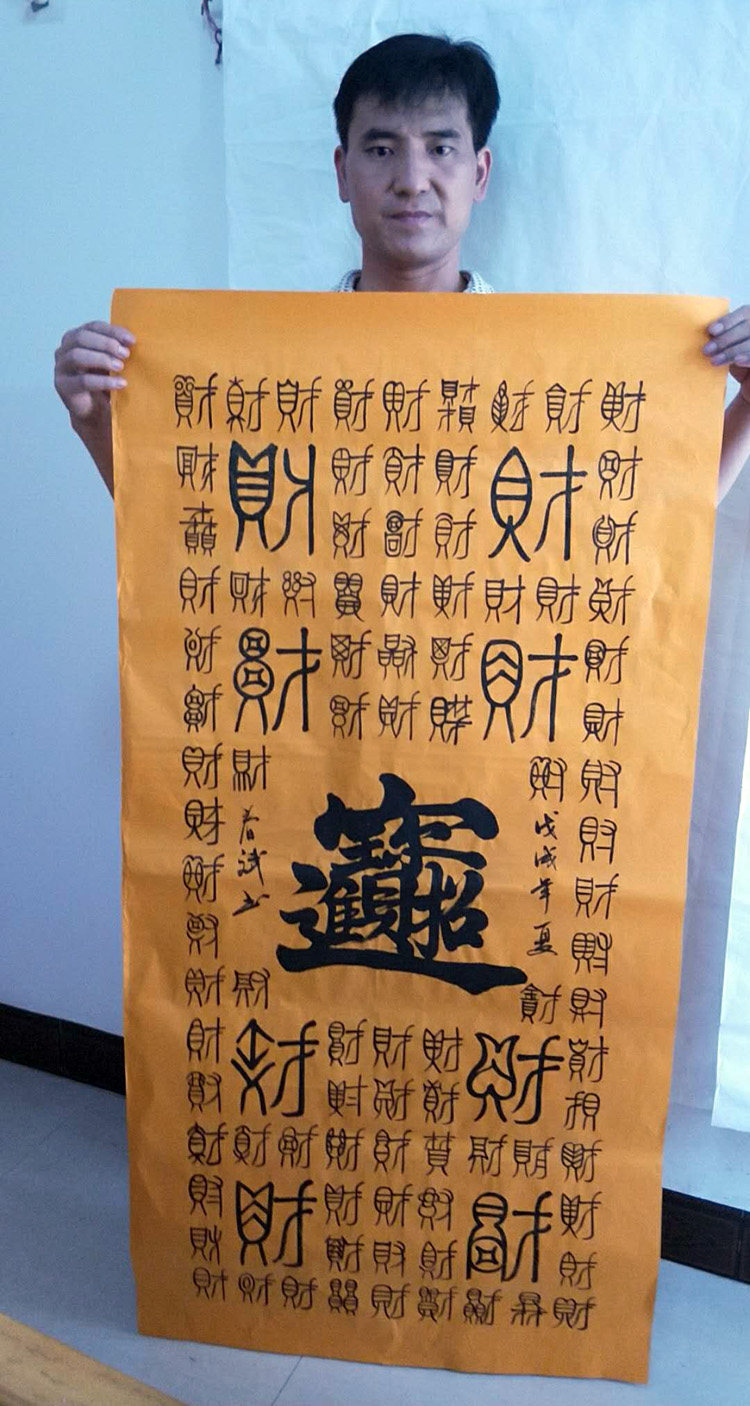 財財財財財財財財財
財財財財財財財
財財財財財
財財財財財財財財財
財財財財財財財
財財財財財
財財財財
財財
財財
財財
財財財財
戊戌年夏
招財進寶
春斌书
財財財財財財財
財財財財財
財財財財財財財財財
財財財財財財財
財財財財財
財財財財財財財財財